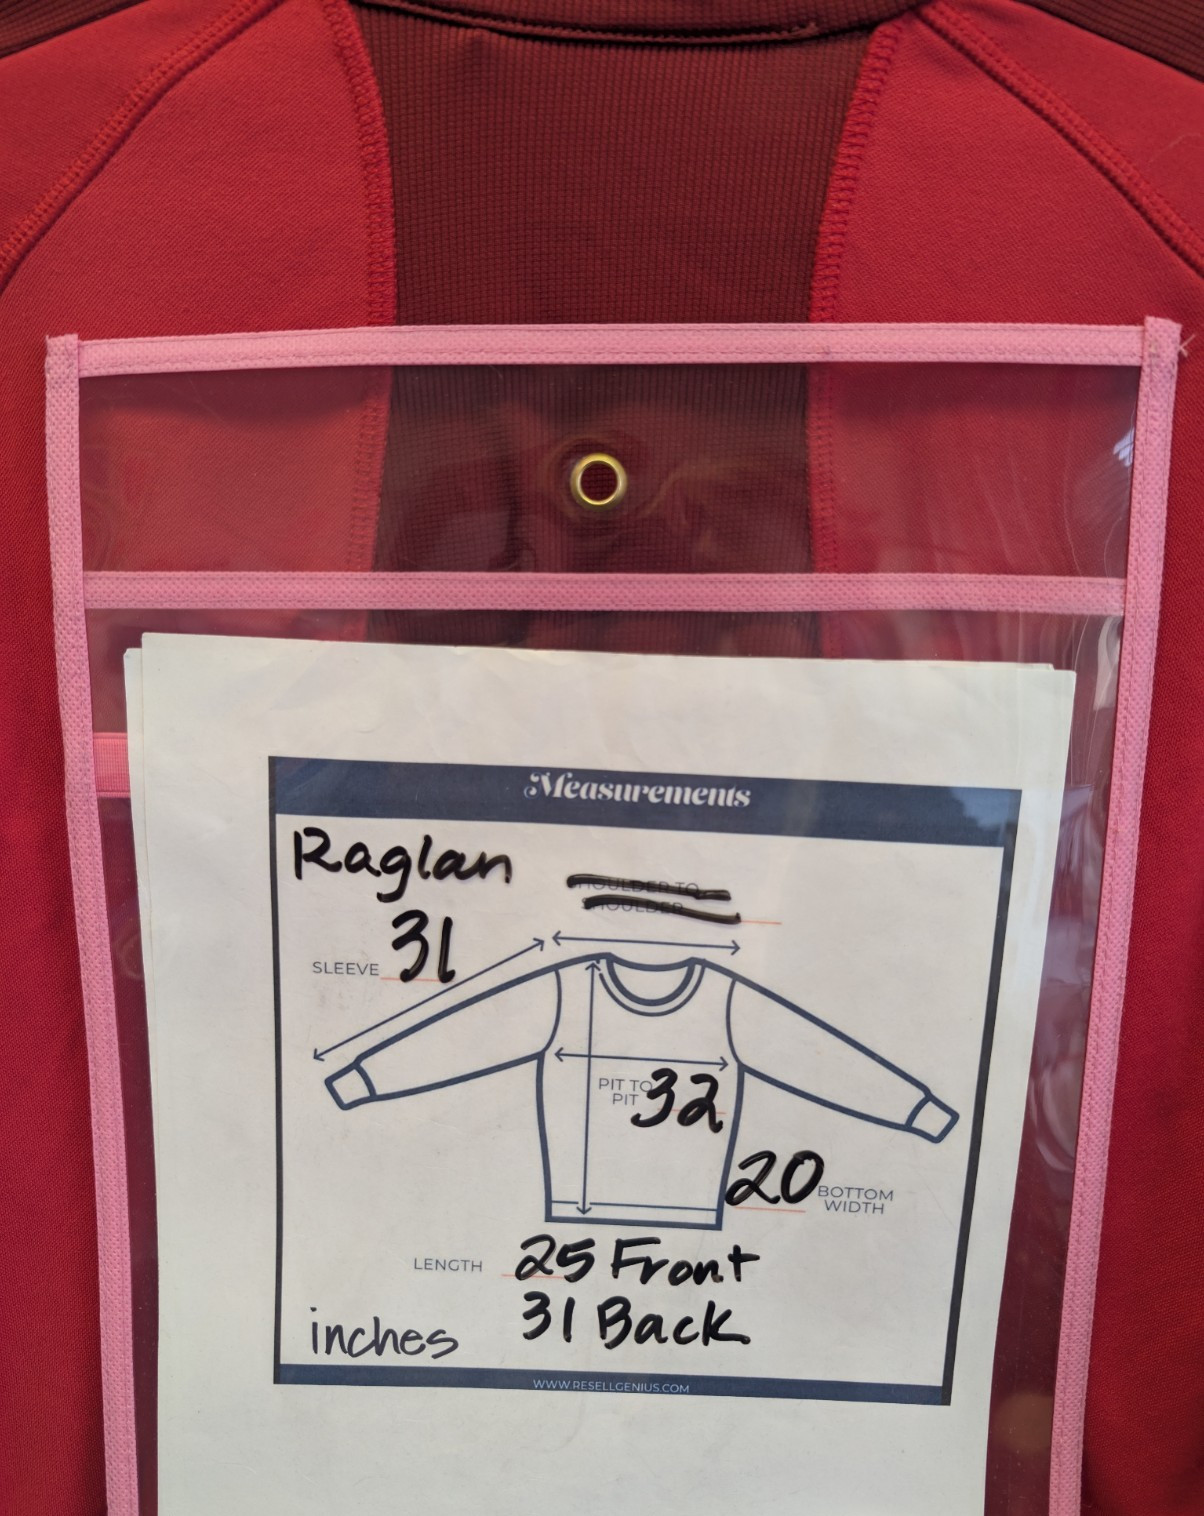 Measurements
Raglan
SHOULDER TO
SHOULDER
SLEEVE 31
PIT TO
PIT 32
20 BOTTOM
WIDTH
LENGTH 25 Front
31 Back
inches
WWW.RESELLGENIUS.COM